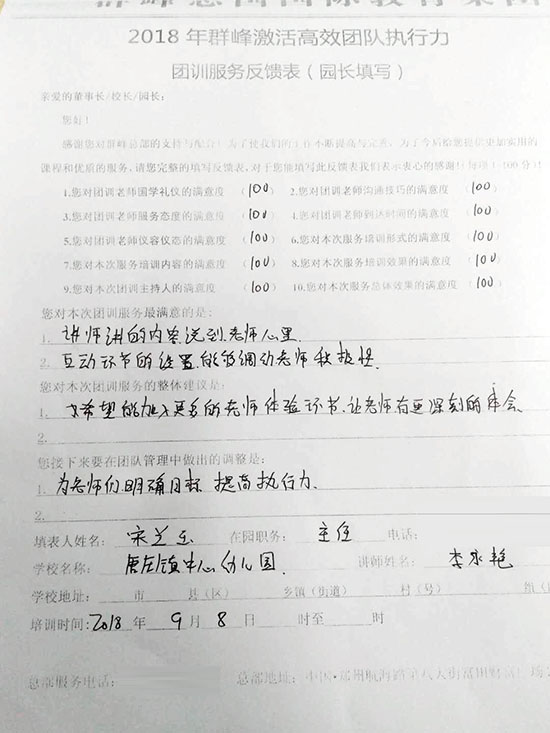 2018 年群峰激活高效团队执行力
团训服务反馈表（园长填写）
亲爱的董事长/校长/园长：
您好！
感谢您对群峰总部的支持与配合！为了使我们的工作不断提高与完善，为了今后给您提供更加实用的
课程和优质的服务，请您完整的填写反馈表，对于您能填写此反馈表我们表示衷心的感谢！（每项 100 分）
1.您对团训老师国学礼仪的满意度 （100） 2.您对团训老师沟通技巧的满意度 （100）
3.您对团训老师服务态度的满意度 （100） 4.您对团训老师到达时间的满意度 （100）
5.您对团训老师仪容仪态的满意度 （100） 6.您对本次服务培训形式的满意度 （100）
7.您对本次服务培训内容的满意度 （100） 8.您对本次服务培训效果的满意度 （100）
9.您对本次团训主持人的满意度 （100） 10.您对本次服务总体效果的满意度 （100）
您对本次团训服务最满意的是：
1. 讲师讲的内容说到老师心里.
2. 互动环节的设置,能够调动老师积极性.
您对本次团训服务的整体建议是：
1. 希望能加入更多的老师体验环节.让老师有更深刻的体会.
2.
您接下来要在团队管理中做出的调整是：
1. 为老师们明确目标 提高执行力.
2.
填表人姓名： 宋芝 在园职务： 主任 电话：
学校名称： 唐庄镇中心幼儿园. 讲师姓名： 李永艳
学校地址： 市 县（区） 乡镇（街道） 村（号） 组（
培训时间：2018 年 9 月 8 日 时至 时
总部服务电话： 总部地址：中国·郑州航海路